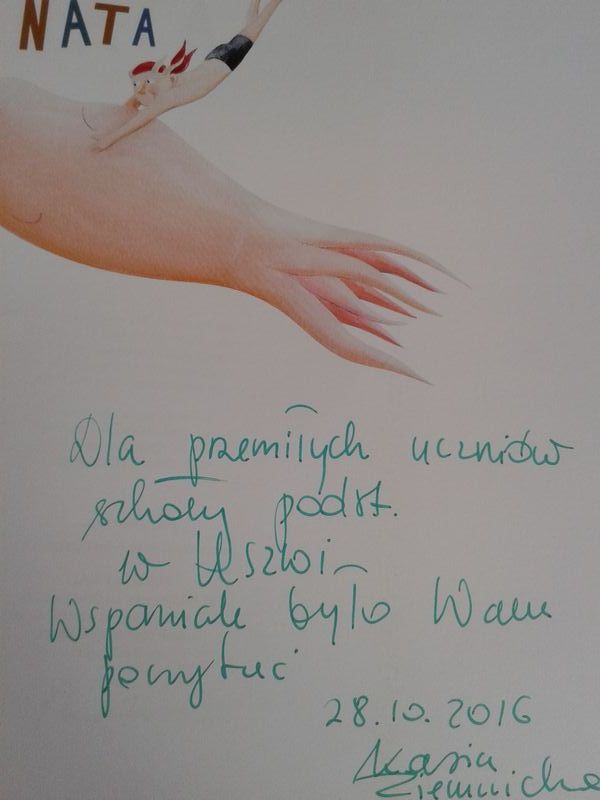 NATA
Dla przemiłych uczniów
szkoły podst.
w Uszwi
Wspaniale było Wam
poczytać
28.10.2016
Kasia
Ziemnicka